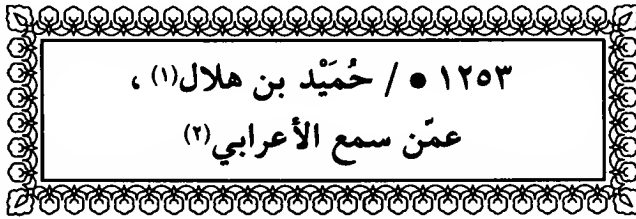 ١٢٥٣ ● / حُمَيْد بن هلال(١) ،
عمّن سمع الأعرابي(٢)